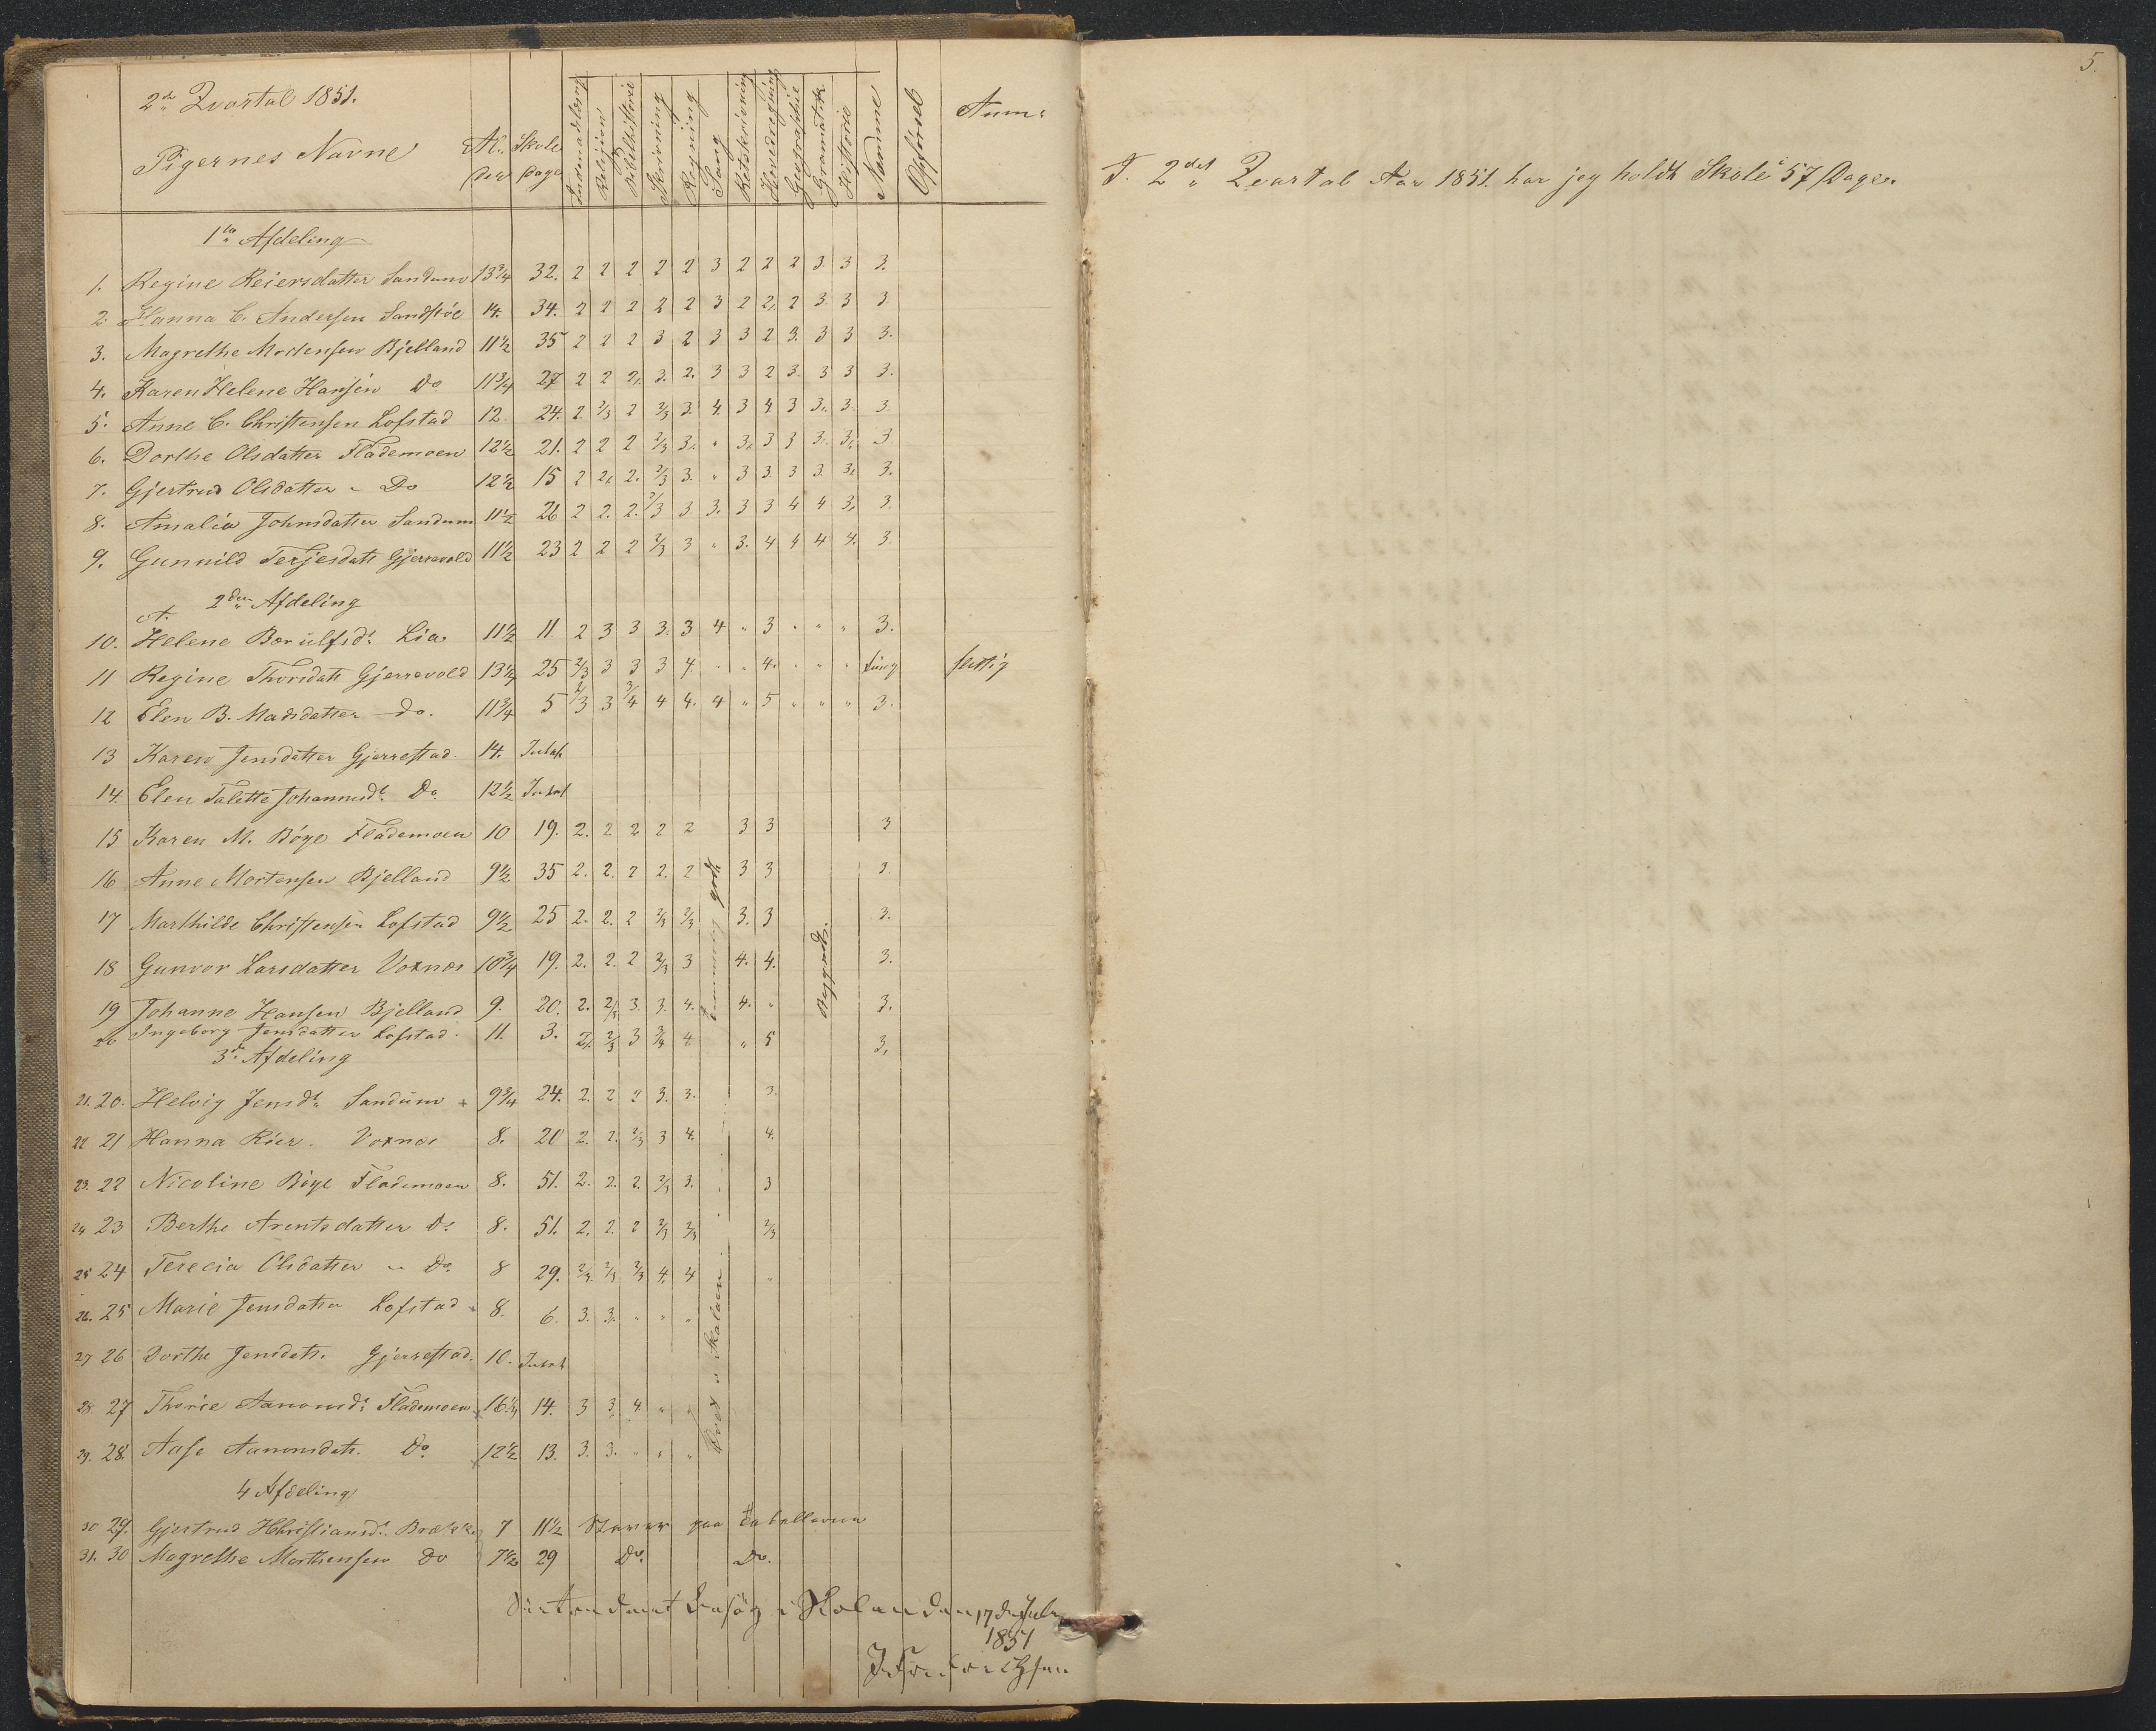 2det Qvartal 1851.
Pigernes Navne Al- der Skole dage Indenadlæsning Religion Bibelhistorie Skrivning Regning Sang Retskrivning Hovedregning Geographie Gramatik Historie Nemme Opførsel Anm:
1te Afdeling
1. Regine Reiersdatter Sandum 13 3/4 32. 2 2 2 2 2 3 2 2 2 3. 3 3.
2. Hanna C. Andersen Sandstøe 14. 34. 2 2 2 2 2 3 2 2 2 3. 3 3
3. Magrethe Mortensen Bjelland 11 1/2 35 2 2 2 3 2 3 3 2 3. 3 3 3.
4. Karen Helene Hansen Do 11 3/4 27 2 2 2 3. 2. 3 3 2 3. 3 3 3.
5. Anne C. Christensen Lofstad 12. 24. 2. 2/3 2 2/3 3. 4. 3 4 3 3. 3. 3.
6. Dorthe Olsdatter Flademoen 12 1/2 21. 2 2 2 2/3 3. " 3. 3 3 3. 3. 3
7. Gjertrud Olsdatter - Do 12 1/2 15 2 2. 2. 2/3 3. " 3 3. 3 3. 3. 3.
8. Amalia Johnsdatter Sandum 11 1/2 26 2 2. 2. 2/3 3 3. 3 3 4 4 3. 3.
9. Gunnild Terjesdatt Gjerrevold 11 1/2 23 2 2 2 2/3 3 " 3. 4 4 4 4. 3.
2den Afdeling
A.
10. Helene Borulfsdt. Lia 11 1/2 11 2 3 3 3. 3 4 " 3 " " " 3.
11 Regine Thorsdatt Gjerrevold 13 1/4 25 2/3 3 3 3 4. " " 4. " " " tung flittig
12 Elen B. Madsdatter do. 11 3/4 5 2/3 3 3/4 4 4. 4 " 5 " " " 3.
13 Karen Jensdatter Gjerrestad 14.
14. Elen Talette Johannesdt. Do. 12 1/2
15 Karen M. Bøye Flademoen 10 19. 2. 2 2 2 2 3 3 3
16 Anne Mortensen Bjelland 9 1/2 35 2. 2. 2 2. 2 3 3 3.
17 Marthilde Christensen Lofstad 9 1/2 25 2. 2. 2 2/3 2/3 3. 3 3.
18 Gunvor Larsdatter Voxnæs 10 3/4 19. 2. 2. 2 2/3 3 4. 4. 3.
19 Johanne Hansen Bjelland 9. 20. 2. 2/3 3. 3. 4. 4. " 3.
20 Ingeborg Jensdatter Lofstad. 11. 3. 2. 2/3 3 3/4 4. " 5 3.
temmelig godt
Begyndt.
3d. Afdeling
21. 20. Helvig Jensdt. Sandum + 9 3/4 24. 2. 2 2 3. 3. 3.
22 21 Hanna Rier. Voxnæs 8. 20 2. 2. 2/3 3 4. 4.
23. 22 Nicoline Bøye Flademoen 8. 51. 2. 2. 2. 2/3 3. 3
24 23 Berthe Arentsdatter Do 8. 51. 2. 2. 2 2/3 2/3 2/3
25 24 Terecia Olsdatter " Do. 8 29. 2/3. 2/3 2/3 4. 4 "
26. 25 Marie Jensdatter Lofstad 8. 6. 3. 3. " " "
27 26 Dorthe Jensdatt. Gjerrestad. 10.
28. 27 Thorie Aanonsdt. Flademoen 16 1/4 14. 3 3. 4. " "
29. 28. Aase Aanonsdatt. Do. 12 1/2 13. 3. 3. " " "
Øvet i Skalaen
4 Afdeling
30 29. Gjertrud Christiansdt. Brække 7 11 1/2 Staver paa tabellerne
31. 30 Magrethe Morthensen Do 7 1/2 29 Do. Do.
besøg i Skolen den 17de Juli
1851
J. Frederichsen
5.
I 2det Qvartal Aar 1851. har jeg holdt Skole i 57 Dage.